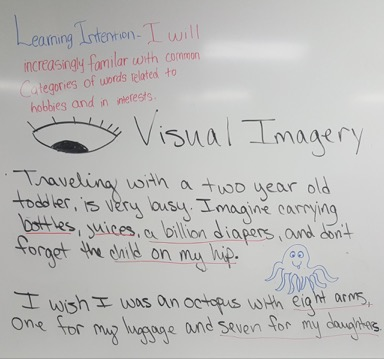 Learning Intention - I will
increasingly familar with common
Categories of words related to
hobbies and in interests.
Visual Imagery
Traveling with a two year old
toddler, is very busy. Imagine carrying
bottles, juices, a billion diapers, and don't
forget the child on my hip.
I wish I was an octopus with eight arms,
one for my luggage and seven for my daughters.